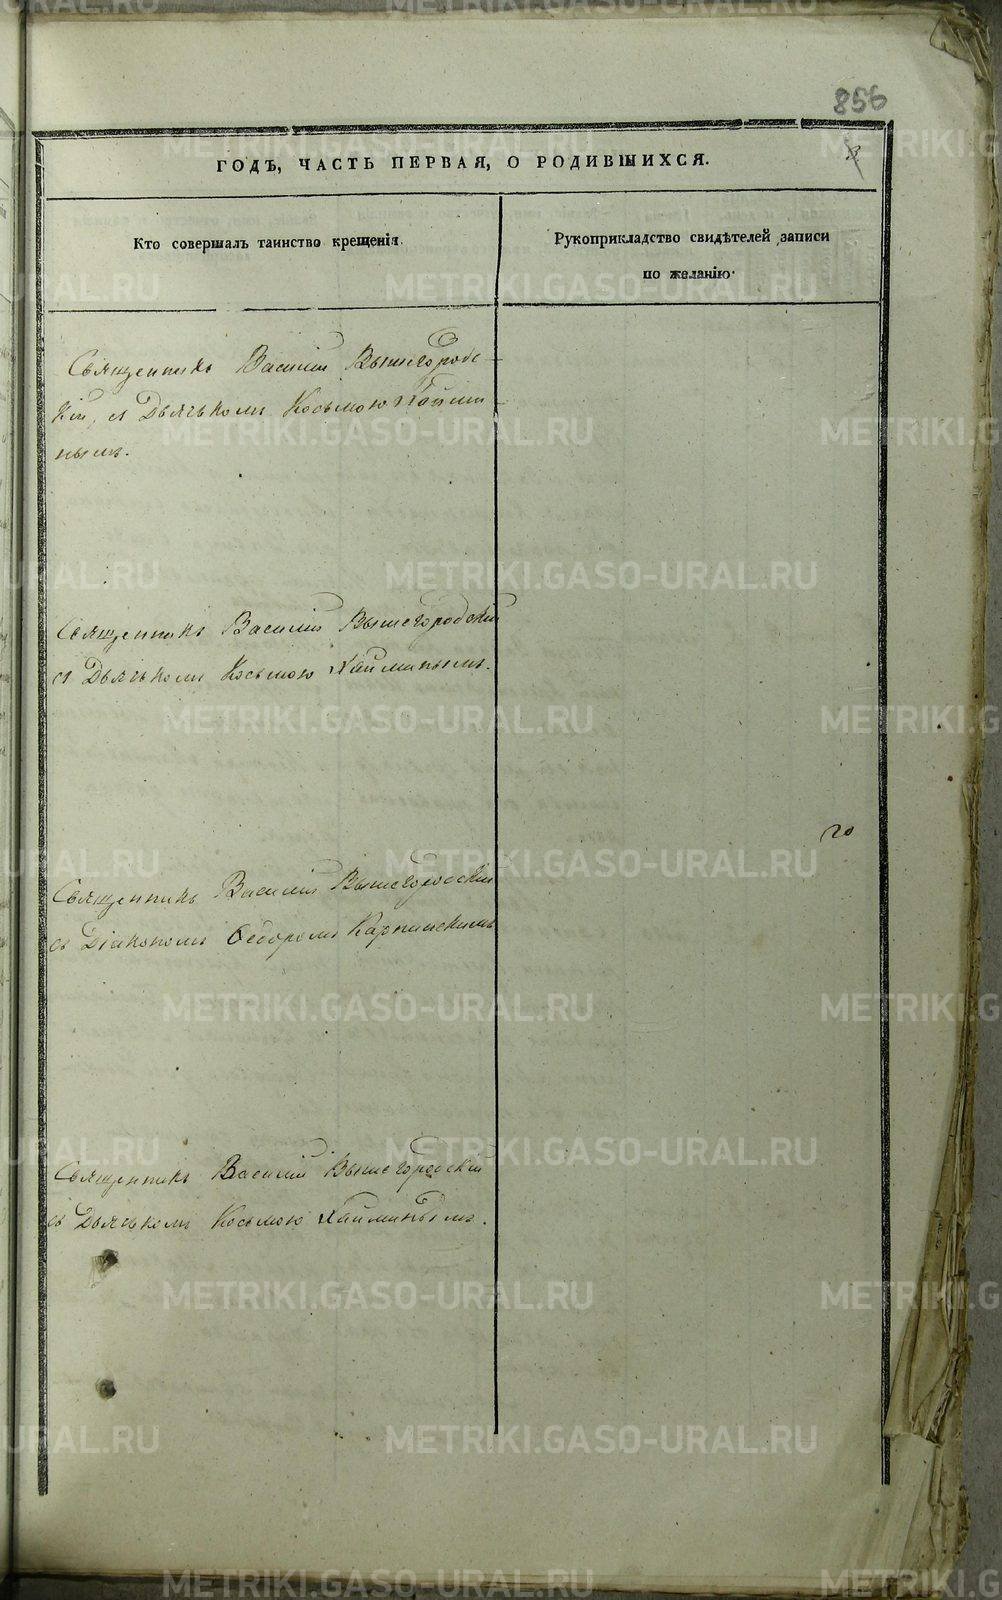 856
ГОДЪ, ЧАСТЬ ПЕРВАЯ, О РОДИВШИХСЯ.
Кто совершалъ таинство крещенія.
Рукоприкладство свидѣтелей записи
по желанію.
Священникъ Василій Вышегородс-
кій, съ Дьячкомъ Косьмою Хаймин
нымъ.
Священникъ Василій Вышегородскій
съ Дьячкомъ Косьмою Хайминымъ.
Священникъ Василій Вышегородскій
съ Діакономъ Ѳедоромъ Карпинскимъ
Священникъ Василій Вышегородскій
съ Дьячкомъ Косьмою Хайминымъ.
METRIKI.GASO-URAL.RU